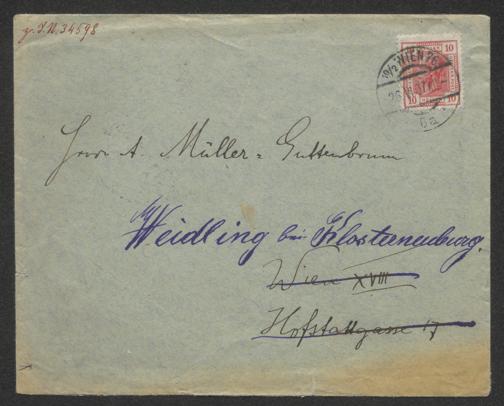 z. I.N. 34598
10
10 10
19/2 WIEN 76
6a
Herrn A. Müller-Guttenbrunn
Weidling bei Klosterneuburg.
Wien XVIII
Hofstattgasse 17